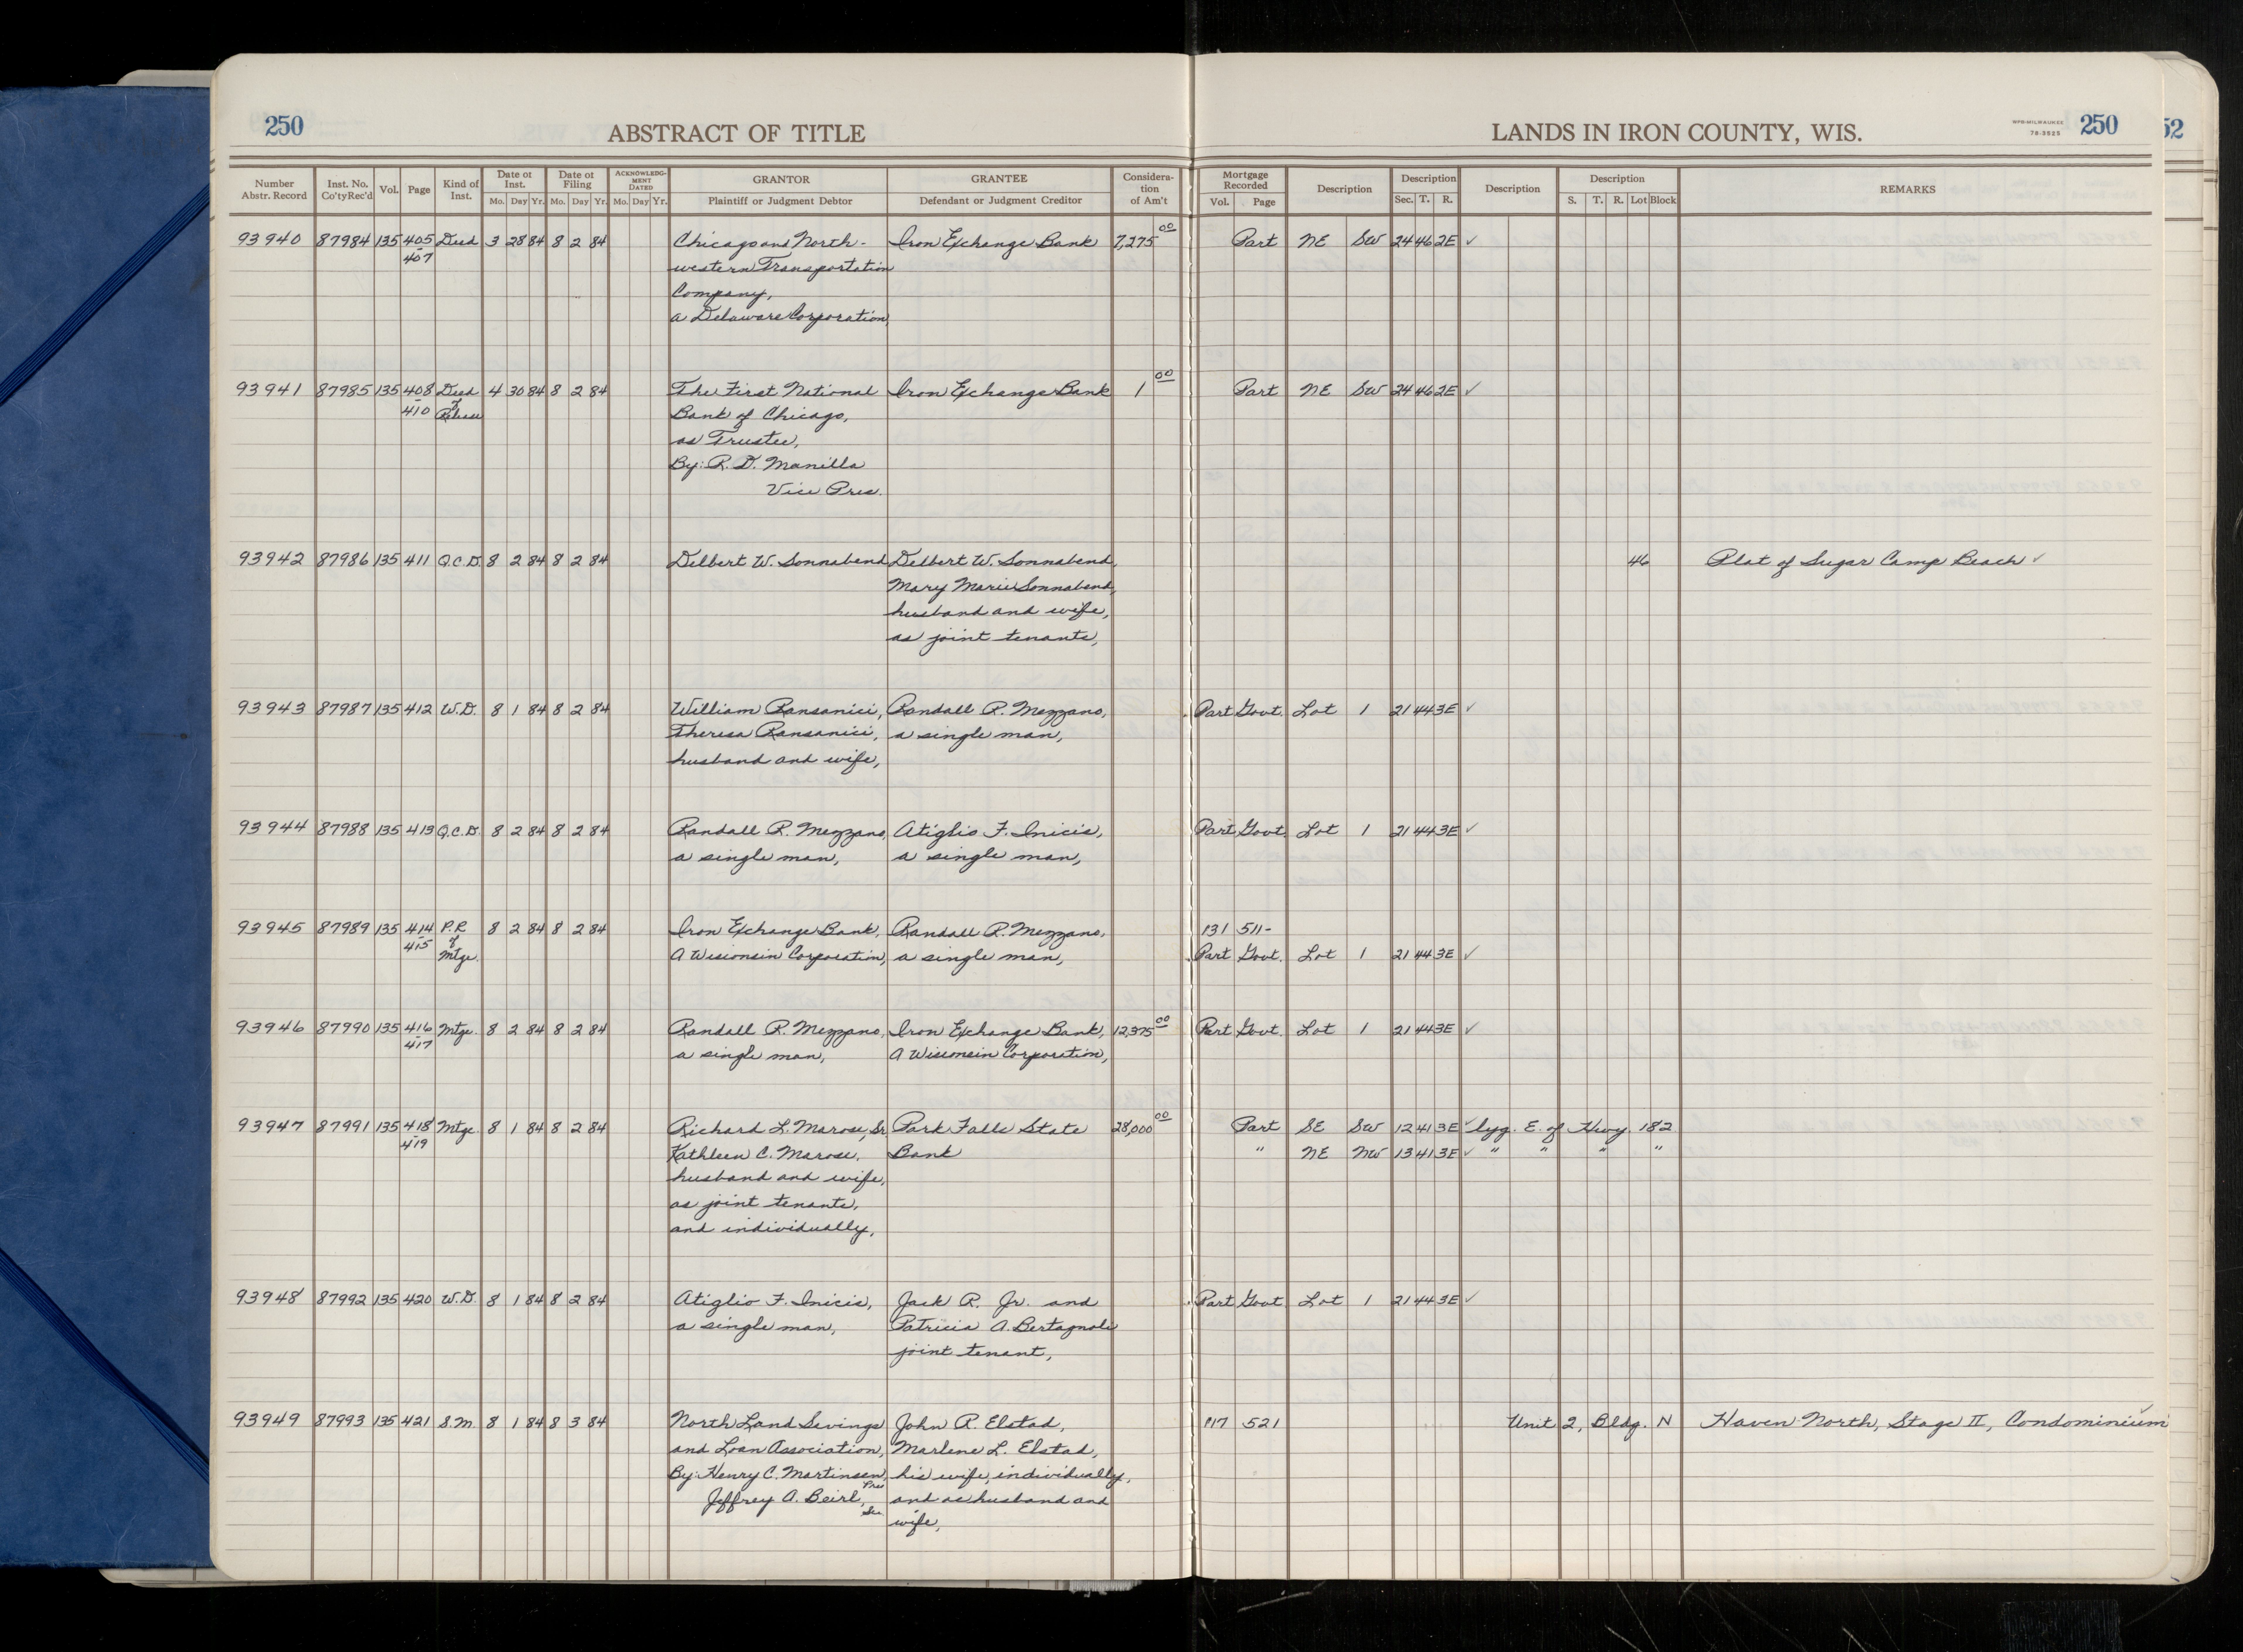 250 ABSTRACT OF TITLE LANDS IN IRON COUNTY, WIS. WPB-MILWAUKEE 78-3525 250 52
Number Abstr. Record Inst. No. Co'ty Rec'd Vol. Page Kind of Inst. Date of Inst. Mo. Day Yr. Date of Filing Mo. Day Yr. ACKNOWLEDGMENT DATED Mo. Day Yr. GRANTOR Plaintiff or Judgment Debtor GRANTEE Defendant or Judgment Creditor Consideration of Am't Mortgage Recorded Vol. Page Description Description Sec. T. R. Description Description S. T. R. Lot Block REMARKS
93940 87984 135 405 Deed 3 28 84 8 2 84 Chicago and North- Iron Exchange Bank 7,275 00 Part NE SW 24 46 2E ✓
407 western Transportation
Company,
a Delaware Corporation,
93941 87985 135 408 Deed 4 30 84 8 2 84 The First National Iron Exchange Bank 1 00 Part NE SW 24 46 2E ✓
410 of Release Bank of Chicago,
as Trustee,
By: R. D. Manilla
Vice Pres.
93942 87986 135 411 Q.C.D. 8 2 84 8 2 84 Delbert W. Sonnabend Delbert W. Sonnabend, 46 Plat of Sugar Camp Beach ✓
Mary Marie Sonnabend,
husband and wife,
as joint tenants,
93943 87987 135 412 W.D. 8 1 84 8 2 84 William Ransanici, Randall R. Mezzano, Part Govt. Lot 1 21 44 3E ✓
Theresa Ransanici, a single man,
husband and wife,
93944 87988 135 413 Q.C.D. 8 2 84 8 2 84 Randall R. Mezzano, Atiglio F. Inicis, Part Govt. Lot 1 21 44 3E ✓
a single man, a single man,
93945 87989 135 414 P.R. 8 2 84 8 2 84 Iron Exchange Bank, Randall R. Mezzano, 131 511-
415 of Mtge. A Wisconsin Corporation, a single man, Part Govt. Lot 1 21 44 3E ✓
93946 87990 135 416 Mtge. 8 2 84 8 2 84 Randall R. Mezzano, Iron Exchange Bank, 12,375 00 Part Govt. Lot 1 21 44 3E ✓
417 a single man, A Wisconsin Corporation,
93947 87991 135 418 Mtge. 8 1 84 8 2 84 Richard L. Marose, Sr. Park Falls State 28,000 00 Part SE SW 12 41 3E ✓ lyg. E. of Hwy. 182
419 Kathleen C. Marose, Bank " NE NW 13 41 3E ✓ " " " "
husband and wife,
as joint tenants,
and individually,
93948 87992 135 420 W.D. 8 1 84 8 2 84 Atiglio F. Inicis, Jack R. Jr. and Part Govt. Lot 1 21 44 3E ✓
a single man, Patricia A. Bertagnoli
joint tenant,
93949 87993 135 421 S.M. 8 1 84 8 3 84 North Land Savings John R. Elstad, 117 521 Unit 2, Bldg. N Haven North, Stage II, Condominium ✓
and Loan Association, Marlene L. Elstad,
By: Henry C. Martinsen, Pres his wife, individually,
Jeffrey A. Beirl, Sec and as husband and
wife,